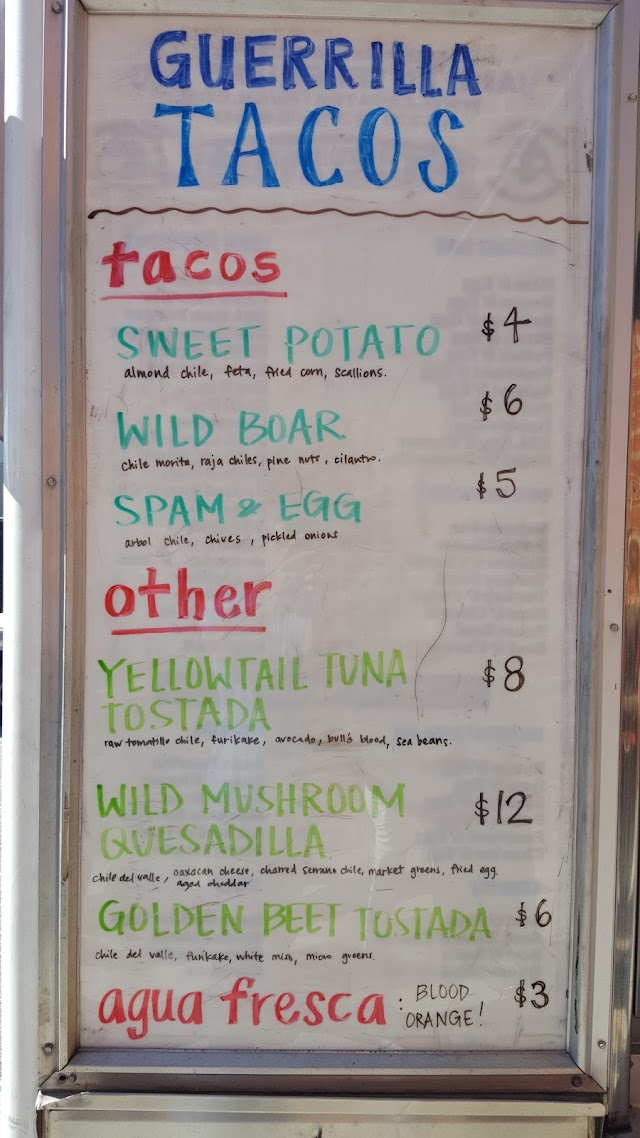 GUERRILLA
TACOS
tacos
SWEET POTATO $4
almond chile, feta, fried corn, scallions.
WILD BOAR $6
chile morita, raja chiles, pine nuts, cilantro.
SPAM & EGG $5
arbol chile, chives, pickled onions
other
YELLOWTAIL TUNA $8
TOSTADA
raw tomatillo chile, furikake, avocado, bull's blood, sea beans.
WILD MUSHROOM $12
QUESADILLA
chile del valle, oaxacan cheese, charred serrano chile, market greens, fried egg.
aged cheddar
GOLDEN BEET TOSTADA $6
chile del valle, furikake, white miso, micro greens.
agua fresca: BLOOD $3
ORANGE!